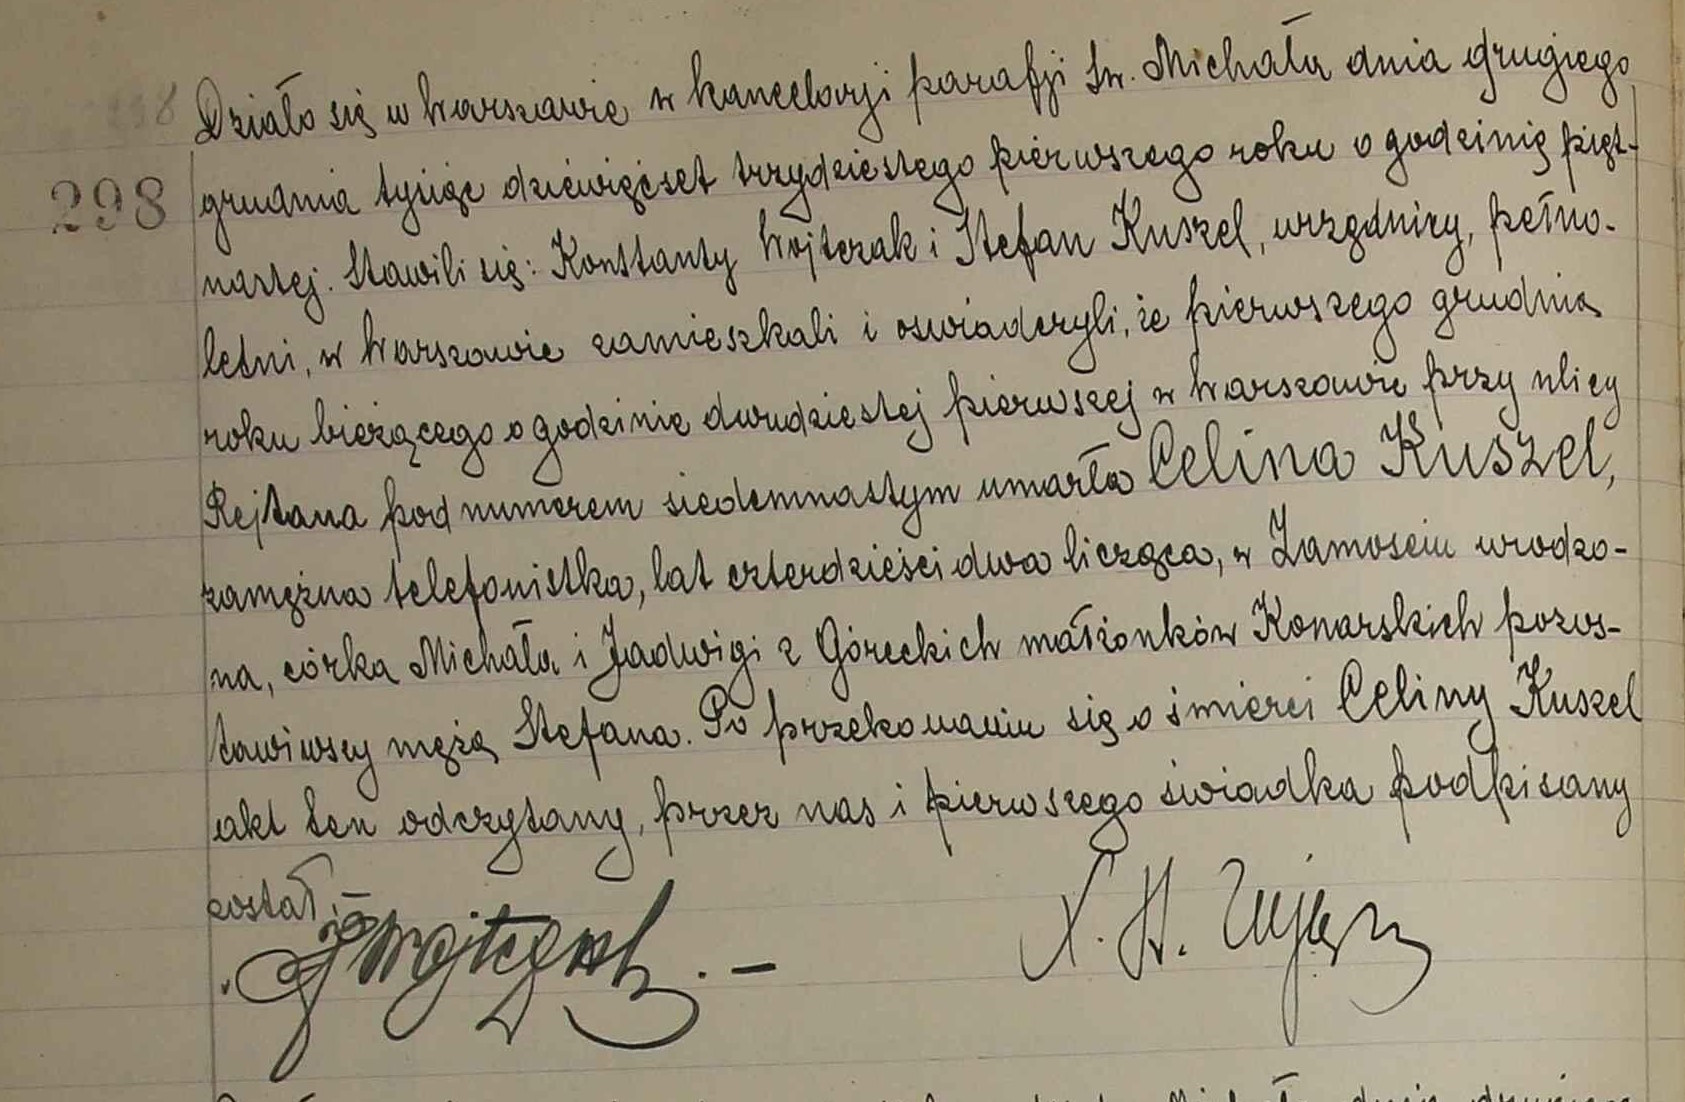 298
Działo się w Warszawie w kancelarji parafji Św. Michała dnia drugiego
298
grudnia tysiąc dziewięćset trzydziestego pierwszego roku o godzinie pięt-
nastej. Stawili się: Konstanty Wojtczak i Stefan Kuszel, urzędnicy, pełno-
letni, w Warszawie zamieszkali i oświadczyli, że pierwszego grudnia
roku bieżącego o godzinie dwudziestej pierwszej w Warszawie przy ulicy
Rejtana pod numerem siedemnastym umarła Celina Kuszel,
zamężna telefonistka, lat czterdzieści dwa licząca, w Zamościu urodzo-
na, córka Michała i Jadwigi z Góreckich małżonków Konarskich pozos-
tawiwszy męża Stefana. Po przekonaniu się o śmierci Celiny Kuszel
akt ten odczytany, przez nas i pierwszego świadka podpisany
został.–
Wojtczak . – X. St.